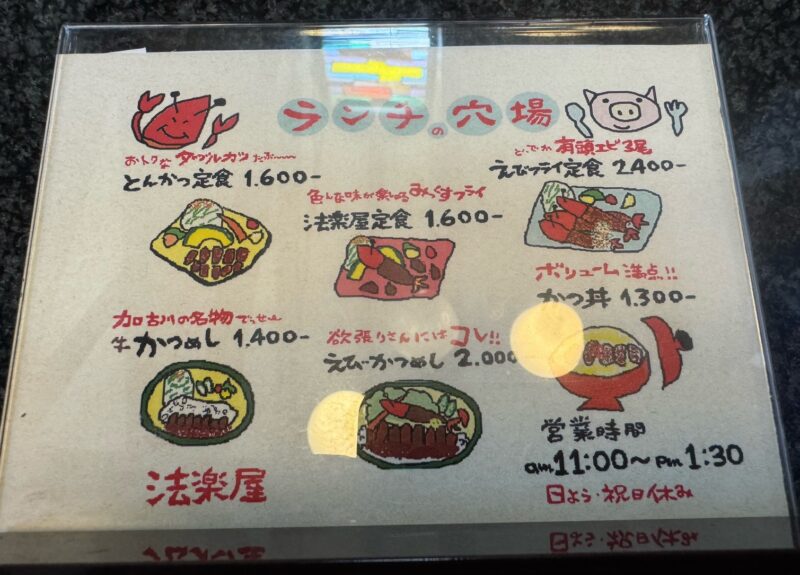 ランチの穴場
おトクな ダブルカツ だぶ〜〜
とんかつ定食 1.600-
色んな味が楽しめる みっくすフライ
法楽屋定食 1.600-
どーでか 有頭エビ3尾
えびフライ定食 2.400-
加古川の名物でっせー
牛かつめし 1.400-
欲張りさんにはコレ!!
えび・かつめし 2.000
ボリューム満点!!
かつ丼 1.300-
営業時間
am11:00〜Pm1:30
日よう・祝日休み
法楽屋